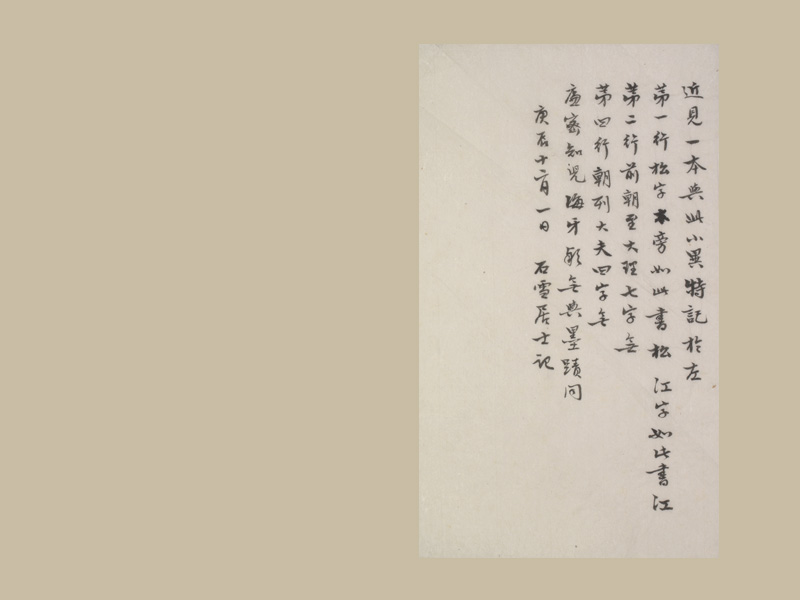 近見一本與此小異特記於左
第一行松字木旁如此書松 江字如此書江
第二行前朝至大理七字無
第四行朝列大夫四字無
庫密知児海牙 無與墨蹟同
庚辰十二月一日 石雪居士記